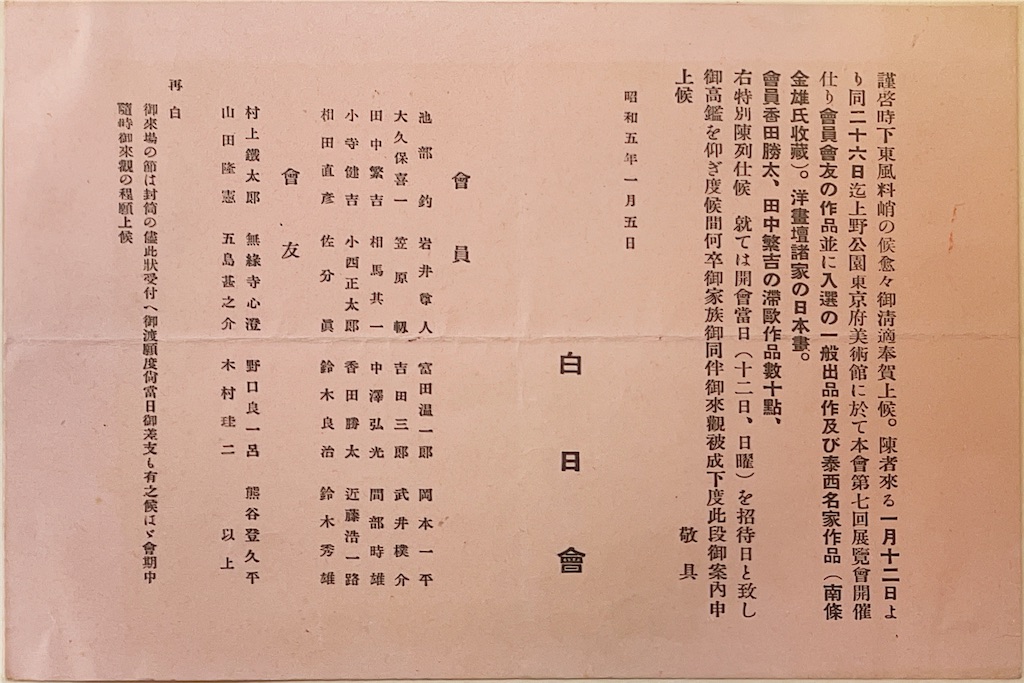 謹啓時下東風料峭の候愈々御淸適奉賀上候。陳者來る一月十二日よ
り同二十六日迄上野公園東京府美術館に於て本會第七回展覽會開催
仕り會員會友の作品並に入選の一般出品作及び泰西名家作品（南條
金雄氏收藏）。洋畫壇諸家の日本畫。
會員香田勝太、田中繁吉の滯歐作品數十點、
右特別陳列仕候　就ては開會當日（十二日、日曜）を招待日と致し
御高鑑を仰ぎ度候間何卒御家族御同伴御來觀被成下度此段御案內申
上候　敬具
昭和五年一月五日
白日會
會員
池部鈞　岩井尊人　富田溫一郞　岡本一平
大久保喜一　笠原靱　吉田三郞　武井樸介
田中繁吉　相馬其一　中澤弘光　間部時雄
小寺健吉　小西正太郞　香田勝太　近藤浩一路
相田直彥　佐分眞　鈴木良治　鈴木秀雄
會友
村上鐵太郞　無緣寺心澄　野口良一呂　熊谷登久平
山田隆憲　五島甚之介　木村珪二　以上
再白
御來場の節は封筒の儘此狀受付へ御渡願度尙當日御差支も有之候はゞ會期中
隨時御來觀の程願上候